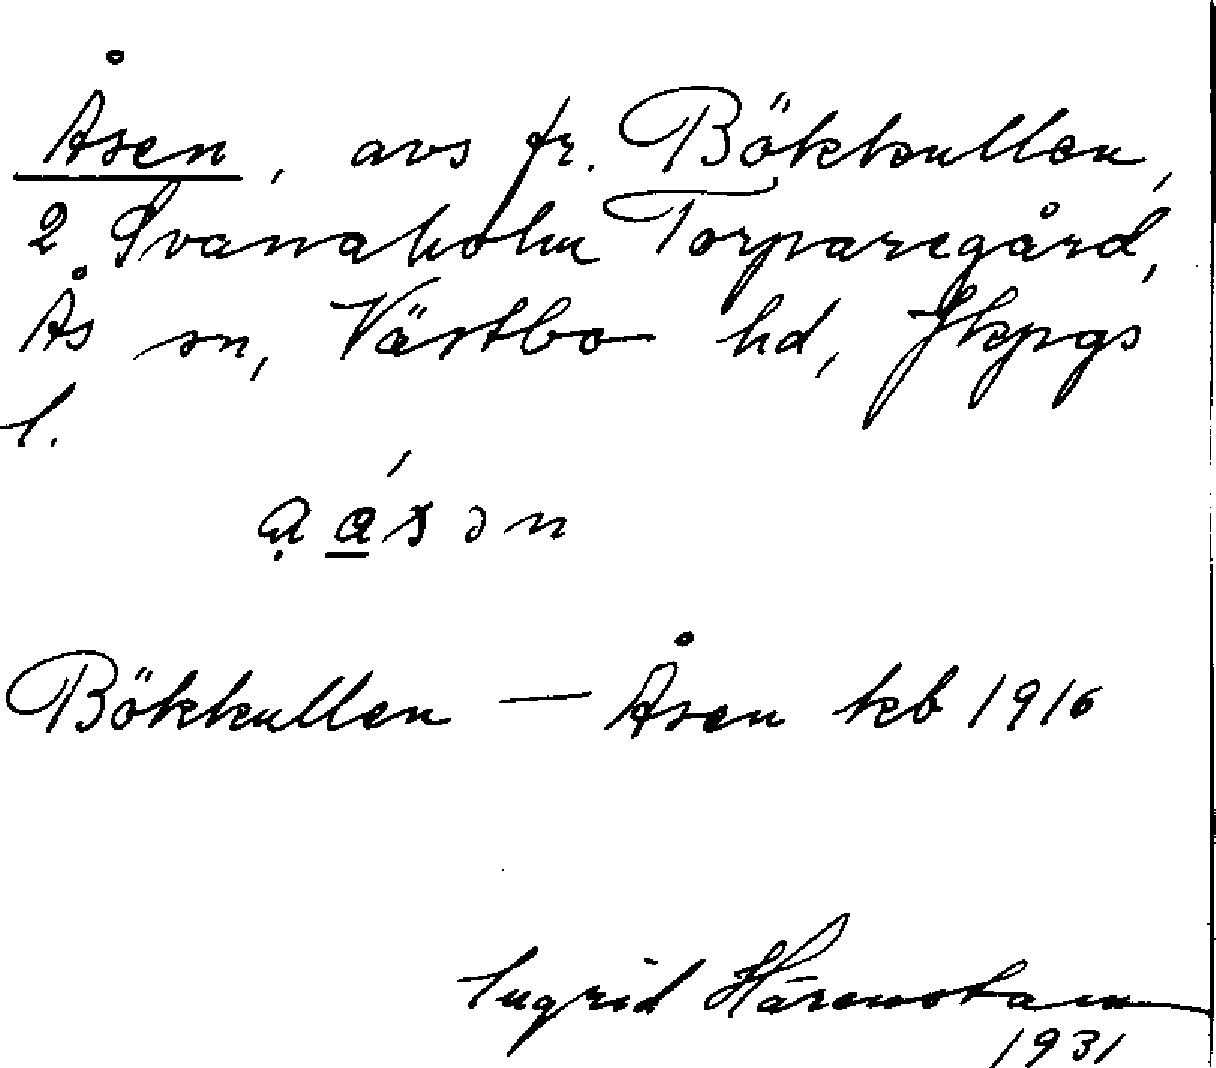 Åsen, avs fr. Bökkullen,
2 Svanaholm Torparegård,
Ås sn, Västbo hd, Jkpgs
l.
Bökkullen — Åsen kb 1916
Ingrid Härenstam
1931